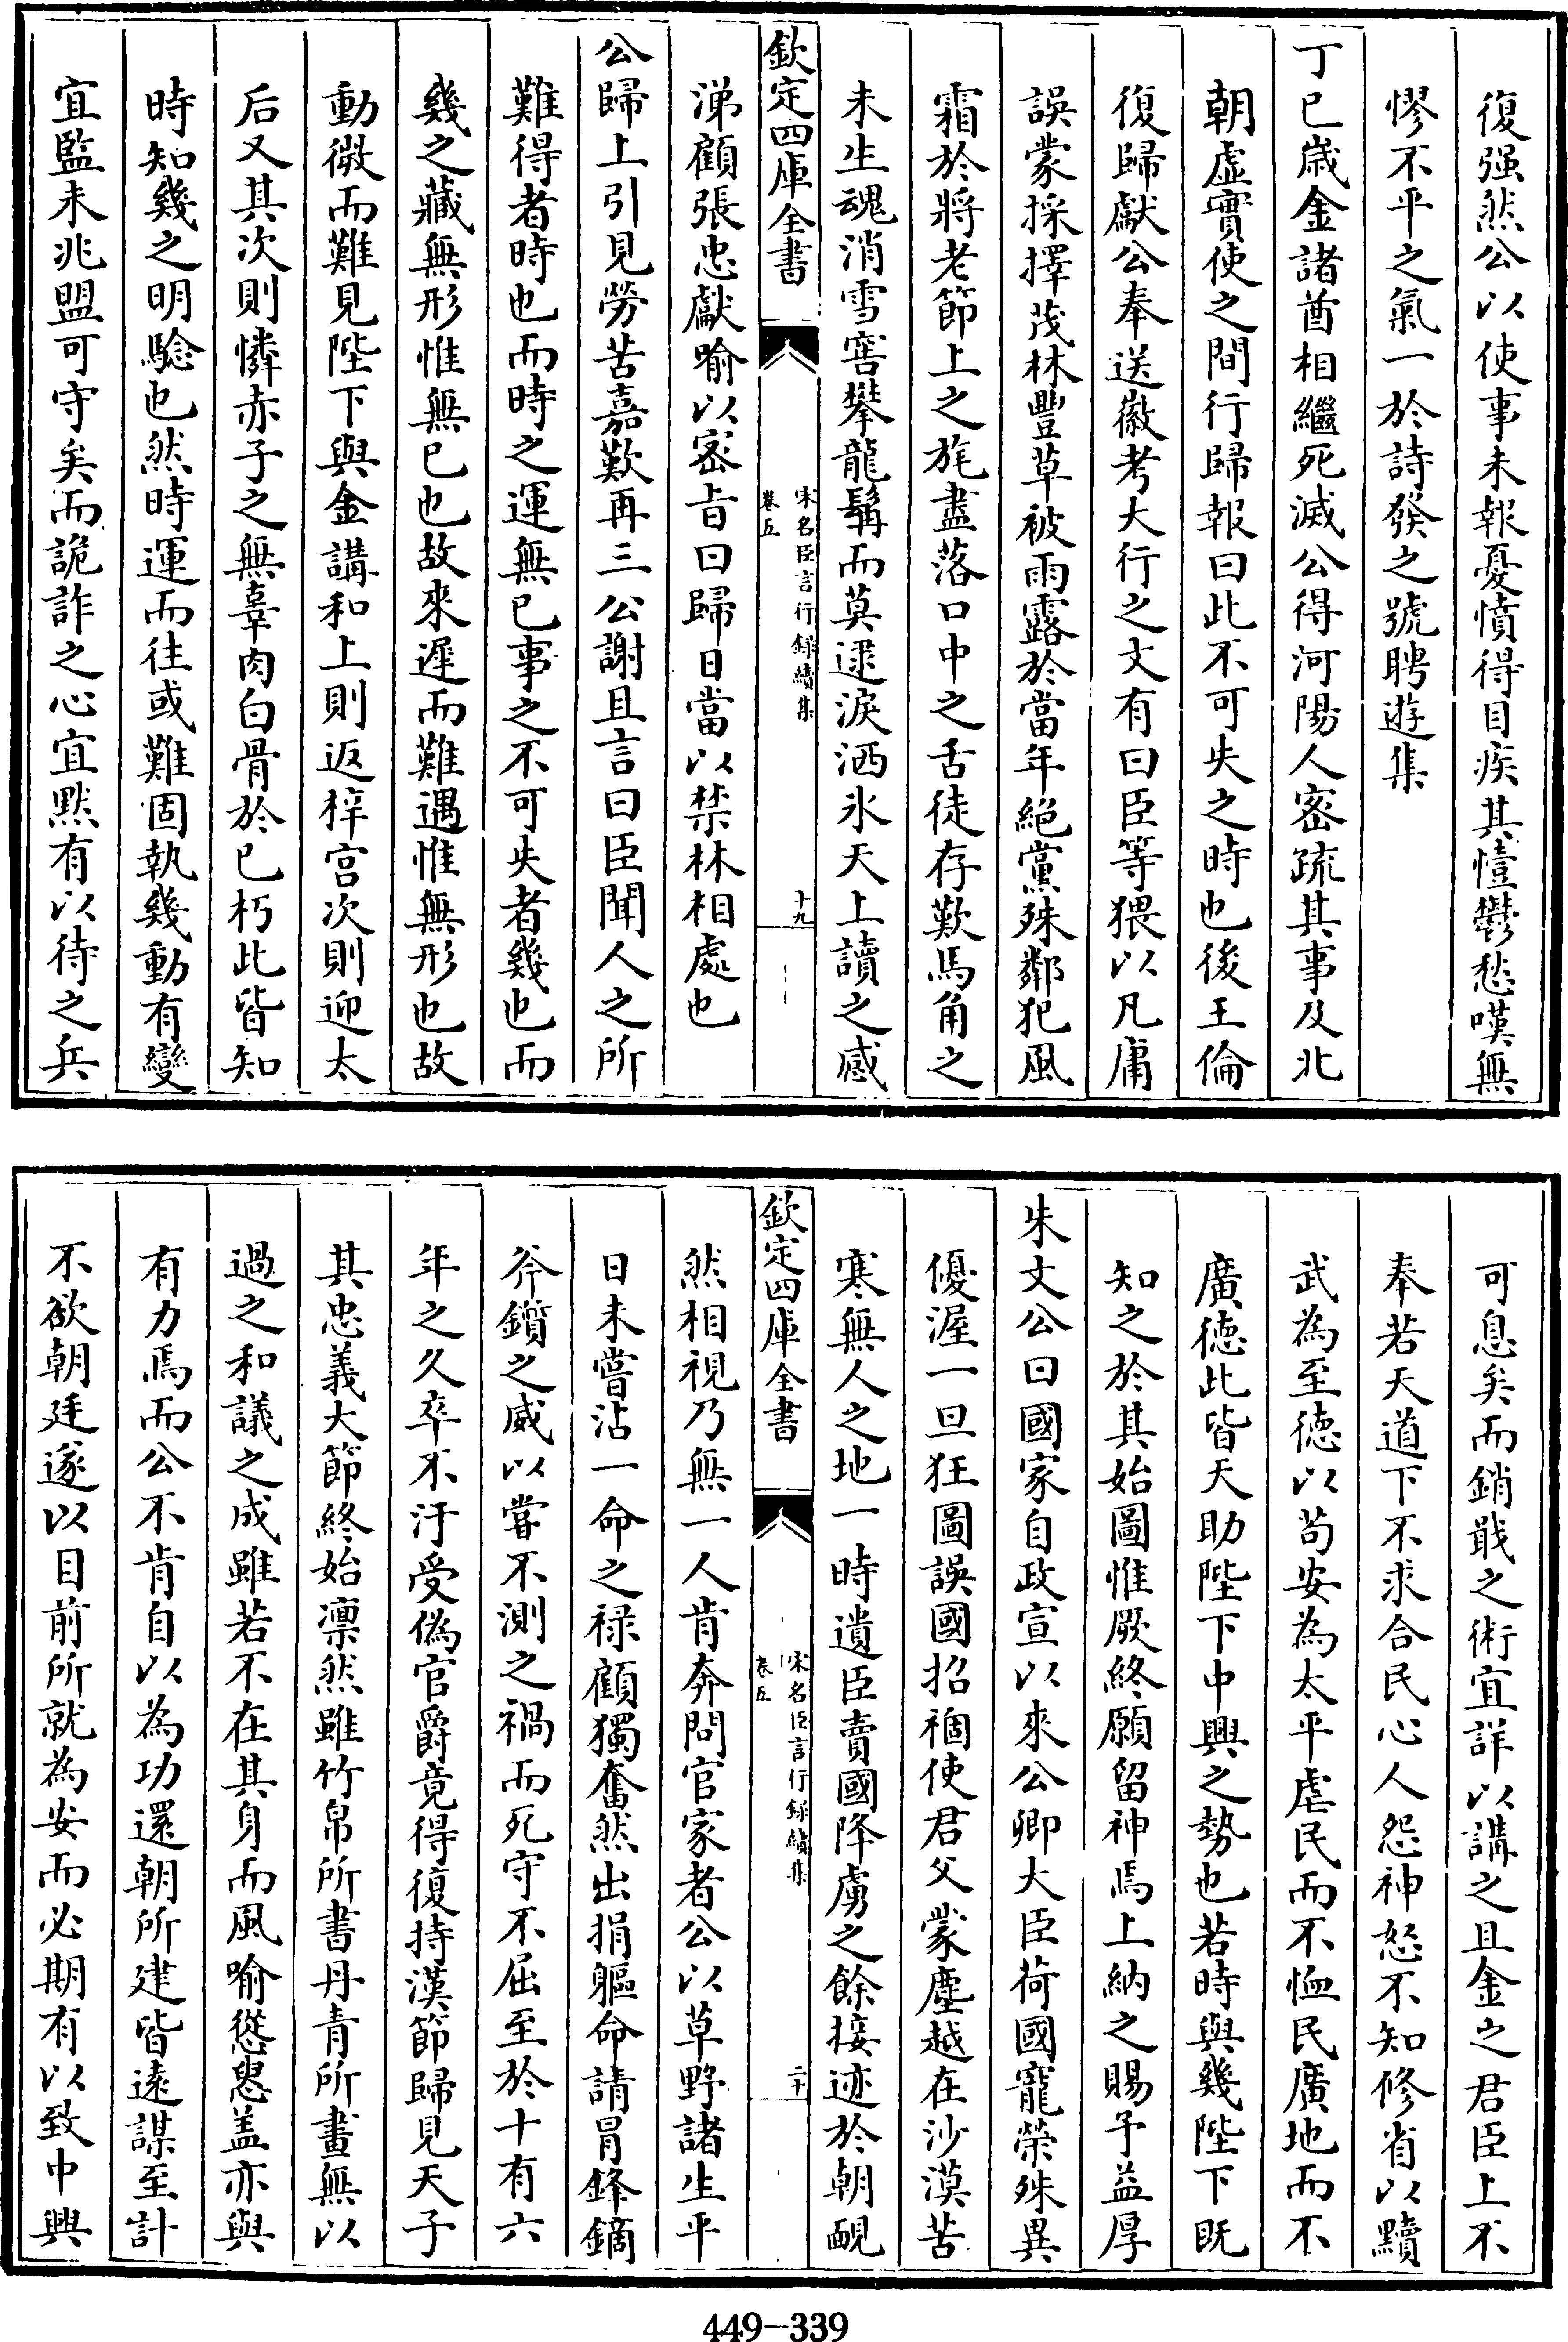 復强然公以使事未報憂憤得目疾其愭鬱愁嘆無
憀不平之氣一於詩發之號聘遊集
丁巳歲金諸酋相繼死滅公得河陽人密疏其事及北
朝虛實使之間行歸報曰此不可失之時也後王倫
復歸獻公奉送徽考大行之文有曰臣等猥以凡庸
誤蒙採擇茂林豐草被雨露於當年絕黨殊鄰犯風
霜於將老節上之旄盡落口中之舌徒存歎馬角之
未生魂消雪窖攀龍髯而莫逮淚洒氷天上讀之感
欽定四庫全書
宋名臣言行録續集
卷五
十九
涕顧張忠獻喻以密旨曰歸日當以禁林相處也
公歸上引見勞苦嘉歎再三公謝且言曰臣聞人之所
難得者時也而時之運無已事之不可失者幾也而
幾之藏無形惟無已也故來遲而難遇惟無形也故
動微而難見陛下與金講和上則返梓宫次則迎太
后又其次則憐赤子之無辜肉白骨於已朽此皆知
時知幾之明驗也然時運而往或難固執幾動有變
宜監未兆盟可守矣而詭詐之心宜黙有以待之兵
可息矣而銷戢之術宜詳以講之且金之君臣上不
奉若天道下不求合民心人怨神怒不知修省以黷
武為至德以茍安為太平虐民而不恤民廣地而不
廣德此皆天助陛下中興之勢也若時與幾陛下既
知之於其始圖惟厥終願留神焉上納之賜予益厚
朱文公曰國家自政宣以來公卿大臣荷國寵榮殊異
優渥一旦狂圖誤國招禍使君父蒙塵越在沙漠苦
寒無人之地一時遺臣賣國降虜之餘接迹於朝覥
欽定四庫全書
宋名臣言行録續集
卷五
二十
然相視乃無一人肯奔問官家者公以草野諸生平
日未嘗沾一命之禄顧獨奮然出捐軀命請冒鋒鏑
斧鑕之威以嘗不測之禍而死守不屈至於十有六
年之久卒不汙受偽官爵竟得復持漢節歸見天子
其忠義大節終始凜然雖竹帛所書丹青所畫無以
過之和議之成雖若不在其身而風喻慫慂盖亦與
有力焉而公不肯自以為功還朝所建皆遠謀至計
不欲朝廷遂以目前所就為安而必期有以致中興
449-339